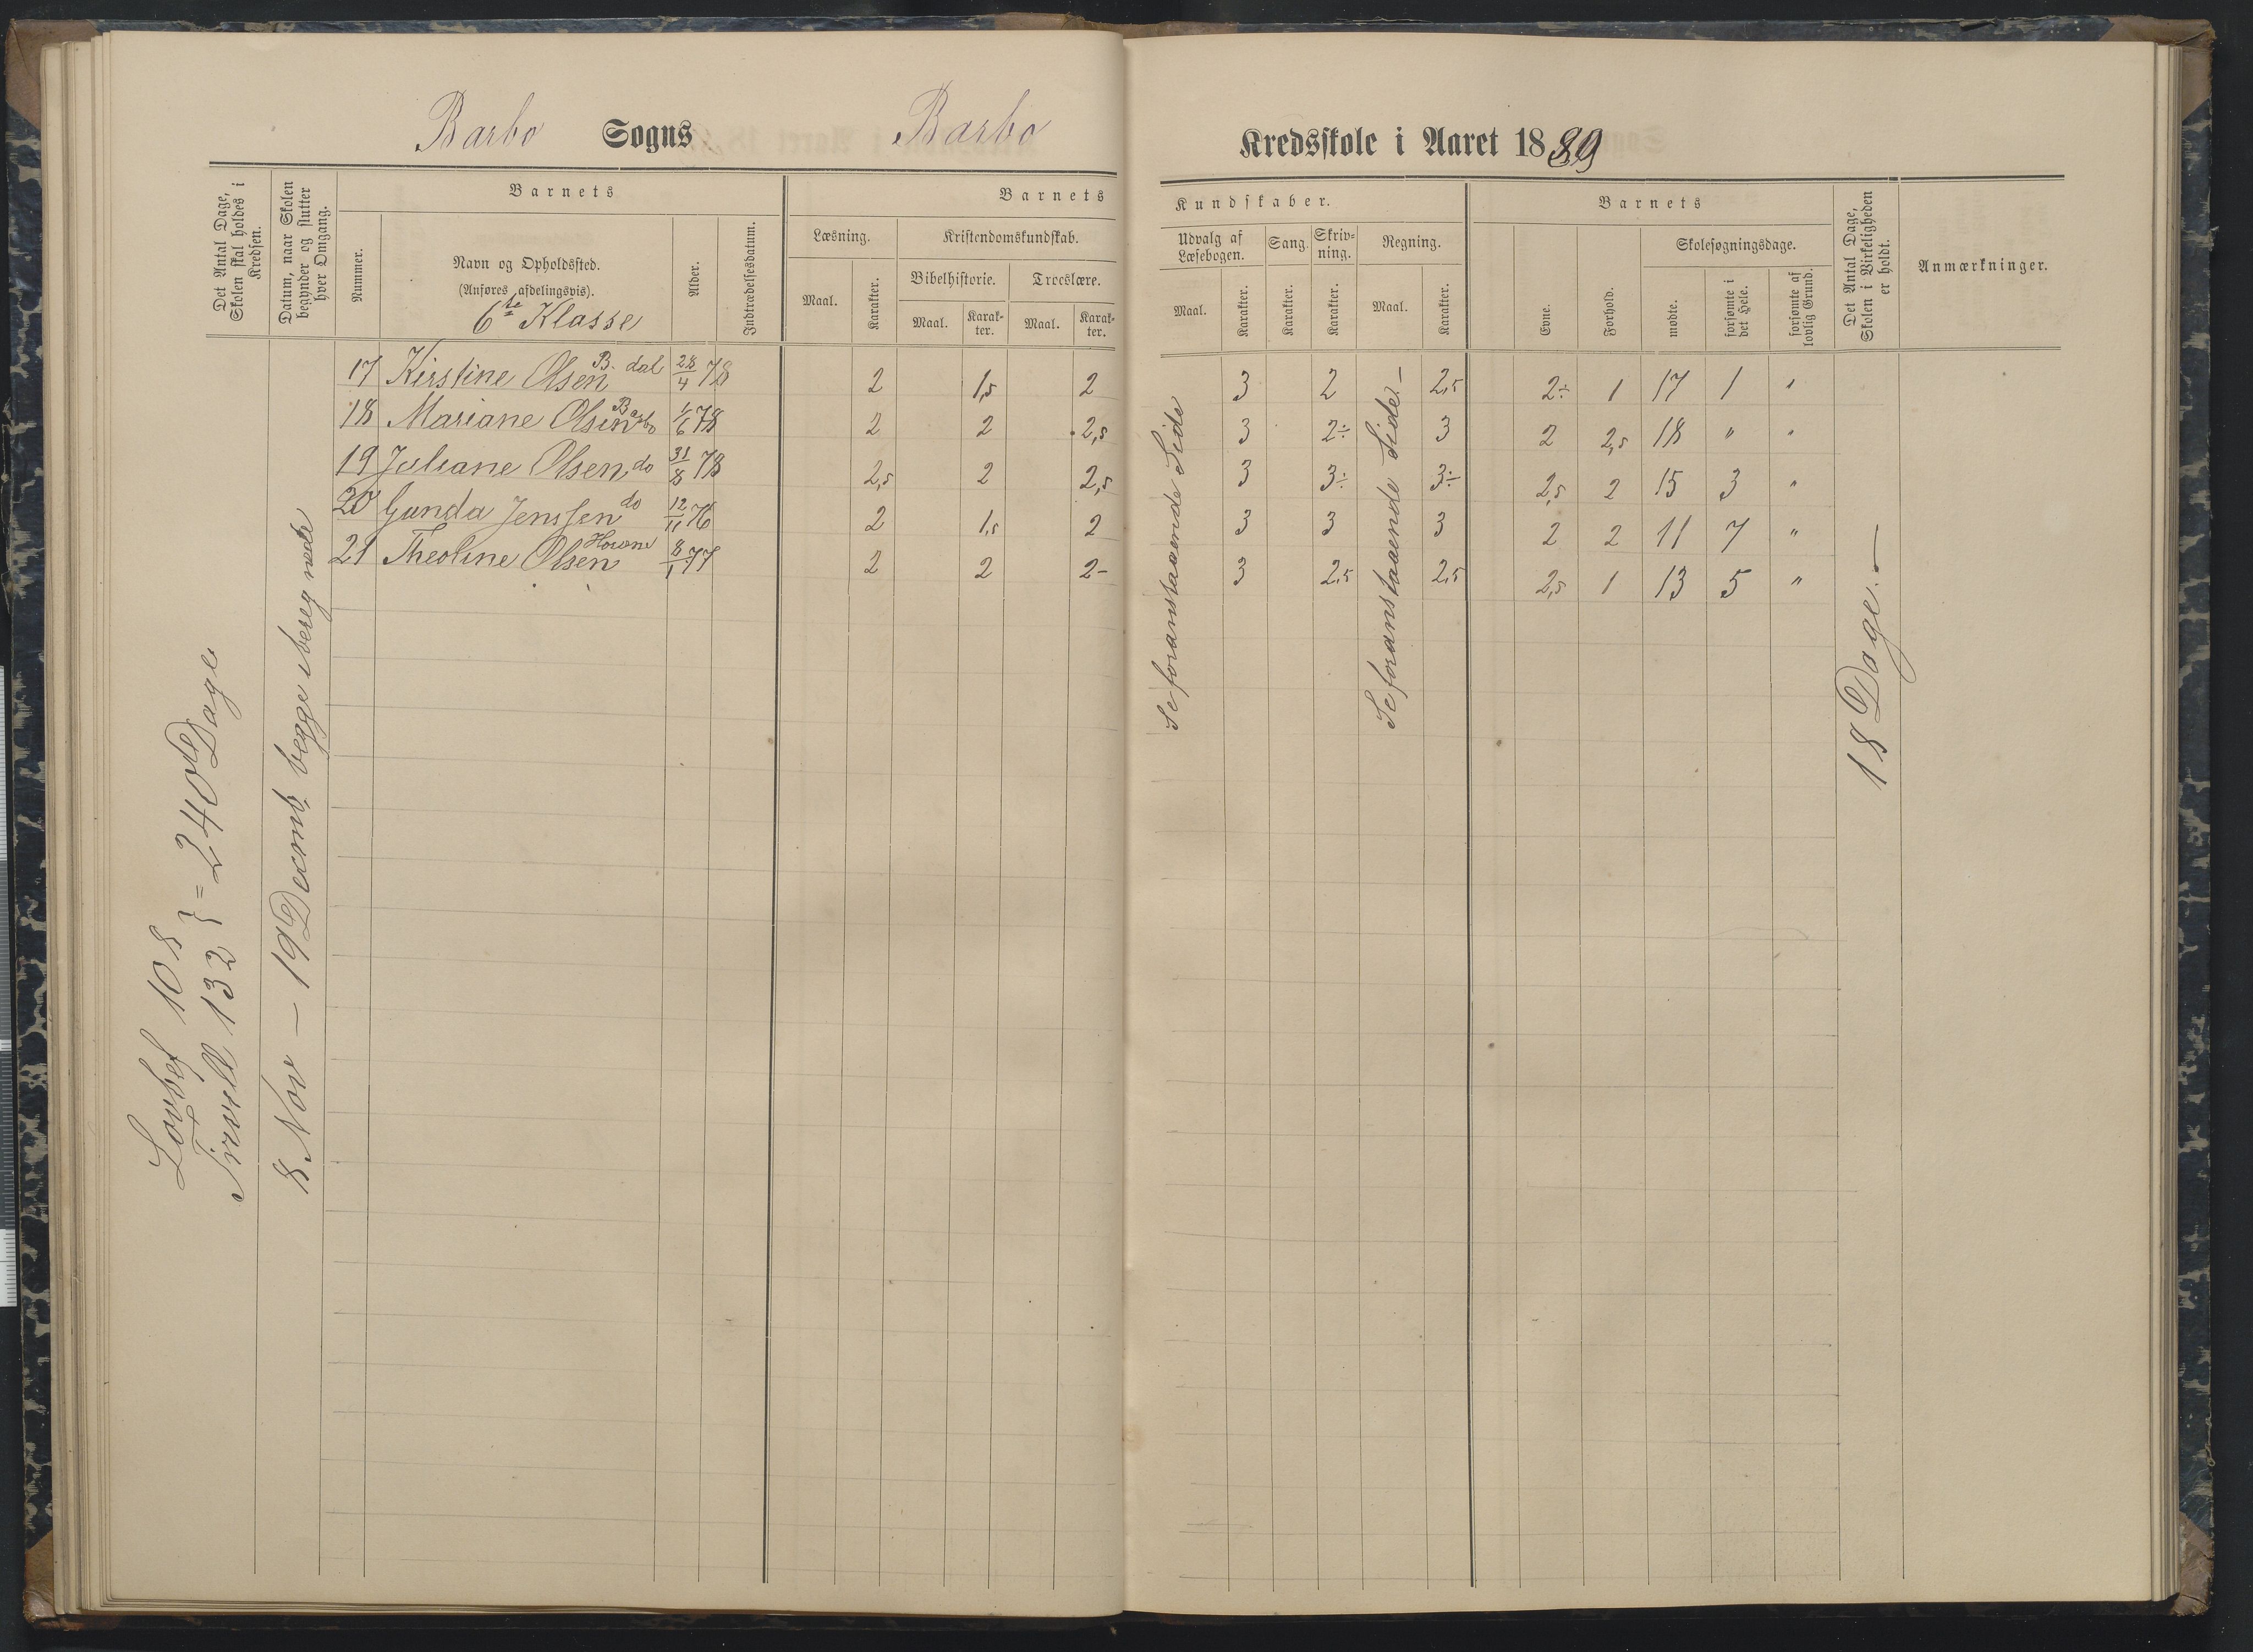 Barbo Sogns Barbo Kredsskole i Aaret 1889
Det Antal Dage, Skolen skal holdes i Kredsen.
Datum, naar Skolen begynder og slutter hver Omgang.
Barnets
Nummer.
Navn og Opholdssted.
(Anføres afdelingsvis).
6te Klasse
Alder.
Indtrædelsesdatum.
Barnets Kundskaber.
Læsning.
Maal.
Karakter.
Kristendomskundskab.
Bibelhistorie.
Maal.
Karakter.
Troeslære.
Maal.
Karakter.
Udvalg af Læsebogen.
Maal.
Karakter.
Sang.
Karakter.
Skrivning.
Karakter.
Regning.
Maal.
Karakter.
Barnets
Evne.
Forhold.
Skolesøgningsdage.
mødte.
forsømte i det Hele.
forsømte af lovlig Grund.
Det Antal Dage, Skolen i Virkeligheden er holdt.
Anmærkninger.
17 Kirstine Olsen B. dal 28/4 78 2 1,5 2 3 2 2,5 2÷ 1 17 1 "
18 Mariane Olsen Barbo 1/6 78 2 2 2,5 3 2÷ 3 2 2,5 18 " "
19 Juliane Olsen do 31/8 78 2,5 2 2,5 3 3÷ 3÷ 2,5 2 15 3 "
20 Gunda Jenssen do 12/11 76 2 1,5 2 3 3 3 2 2 11 7 "
21 Theoline Olsen 8/1 77 2 2 2- 3 2,5 2,5 2,5 1 13 5 "
Lovbef 108
Frivill 132 } = 240 Dage
8 Nov – 19 Decemb. begge iberegnede
Se foranstaaende Side
Se foranstaaende Side –
18 Dage. –